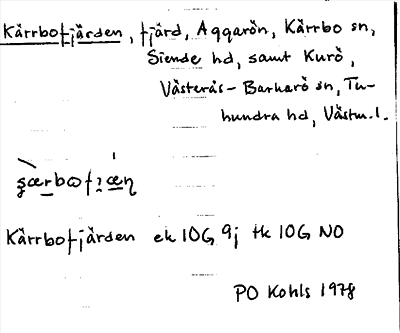 Kärrbofjärden, fjärd, Aggarön, Kärrbo sn,
Siende hd, samt Kurö,
Västerås-Barkarö sn, Tu-
hundra hd, Västm.l.
Kärrbofjärden ek 10G 9j tk 10G NO
PO Kohls 1978